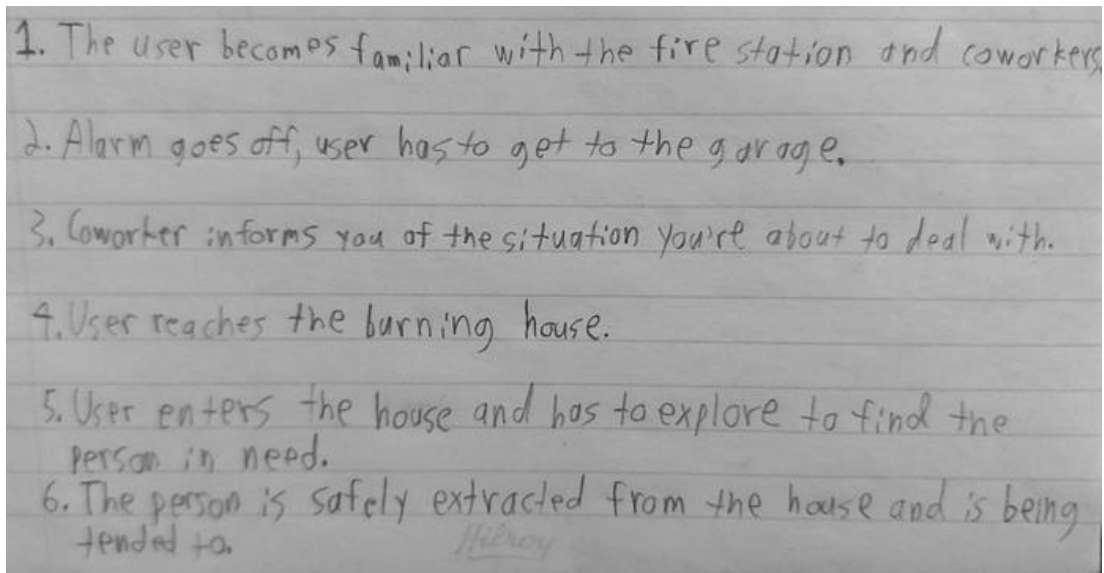 1. The user becomes familiar with the fire station and coworkers.
2. Alarm goes off, user has to get to the garage.
3. Coworker informs you of the situation you're about to deal with.
4. User reaches the burning house.
5. User enters the house and has to explore to find the
person in need.
6. The person is safely extracted from the house and is being
tended to.
Hilroy